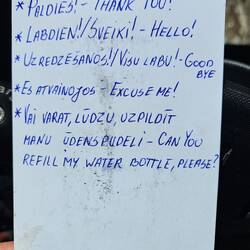 * PALDIES! - THANK YOU!
* LABDIEN!/SVEIKI! - HELLO!
* UZREDZĒŠANOS!/VISU LABU! - GOOD
BYE
* ES ATVAINOJOS - EXCUSE ME!
* VAI VARAT, LŪDZU, UZPILDĪT
MANU ŪDENSPUDELI - CAN YOU
REFILL MY WATER BOTTLE, PLEASE?